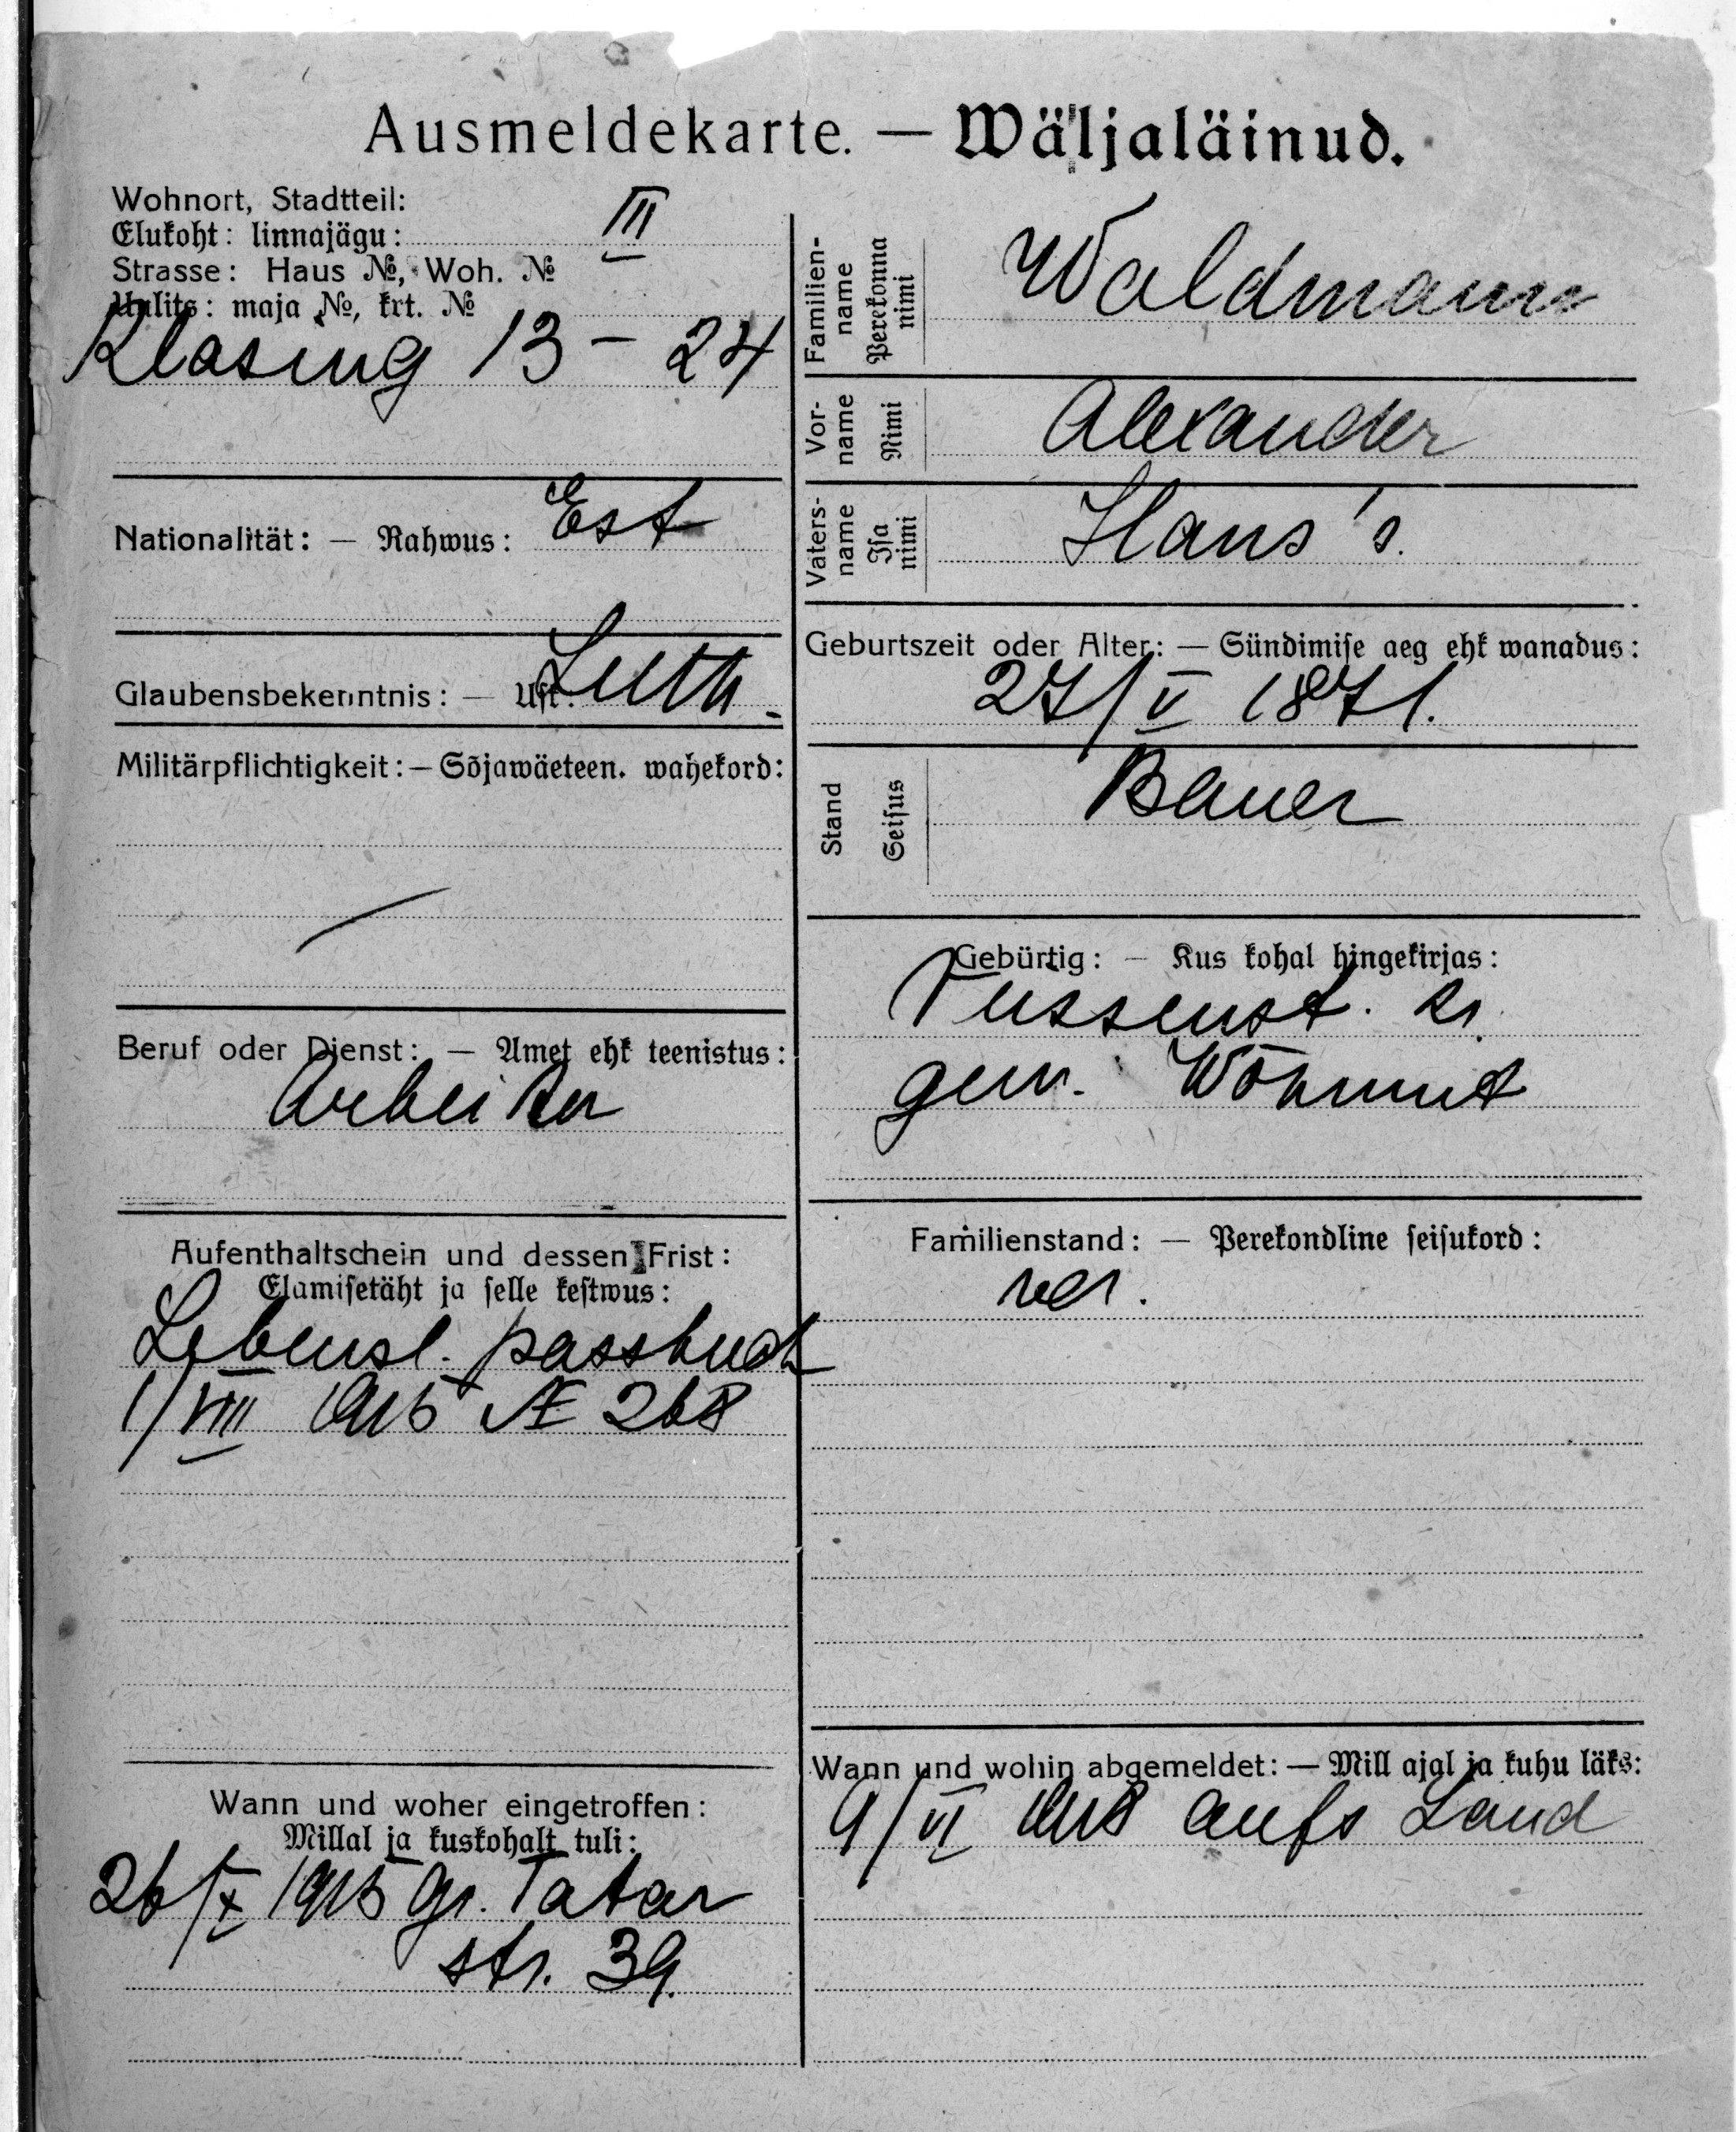 Ausmeldekarte. — Wäljaläinud.
Wohnort, Stadtteil:
Elukoht: linnajägu: III
Strasse: Haus №, Woh. №
Uulits: maja №, krt. №
Klasing 13 – 24
Nationalität: — Rahwus: Est
Glaubensbekenntnis: — Usk: Luth.
Militärpflichtigkeit: — Sõjawäeteen. wahekord:
Beruf oder Dienst: — Amet ehk teenistus:
Arbeiter
Aufenthaltschein und dessen Frist:
Elamisetäht ja selle kestwus:
Lebensl. passbuch
1/VIII 1915 № 268
Wann und woher eingetroffen:
Millal ja kuskohalt tuli:
26/X 1915 Gr. Tatar
str. 39.
Familien-
name
Perekonna
nimi
Waldmann
Vor-
name
Nimi
Alexander
Vaters-
name
Isa
nimi
Hans's.
Geburtszeit oder Alter: — Sündimise aeg ehk wanadus:
27/V 1871.
Stand
Seisus
Bauer
Gebürtig: — Kus kohal hingekirjas:
gem.
Familienstand: — Perekondline seisukord:
ver.
Wann und wohin abgemeldet: — Mill ajal ja kuhu läks:
9/VI 1918 aufs Land